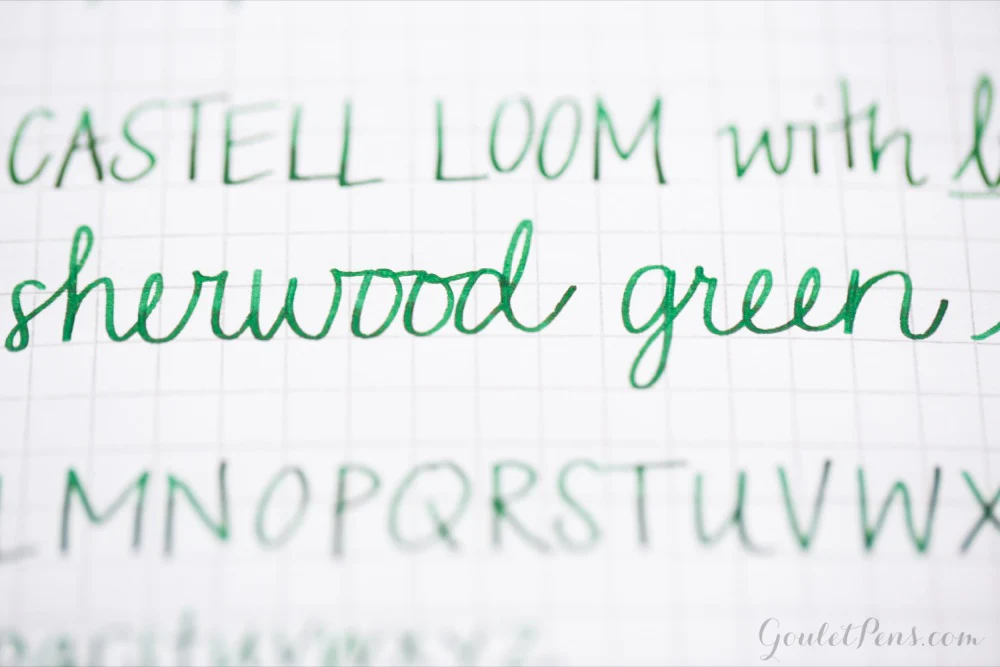 CASTELL LOOM with
sherwood green
L M N O P Q R S T U V W X
GouletPens.com